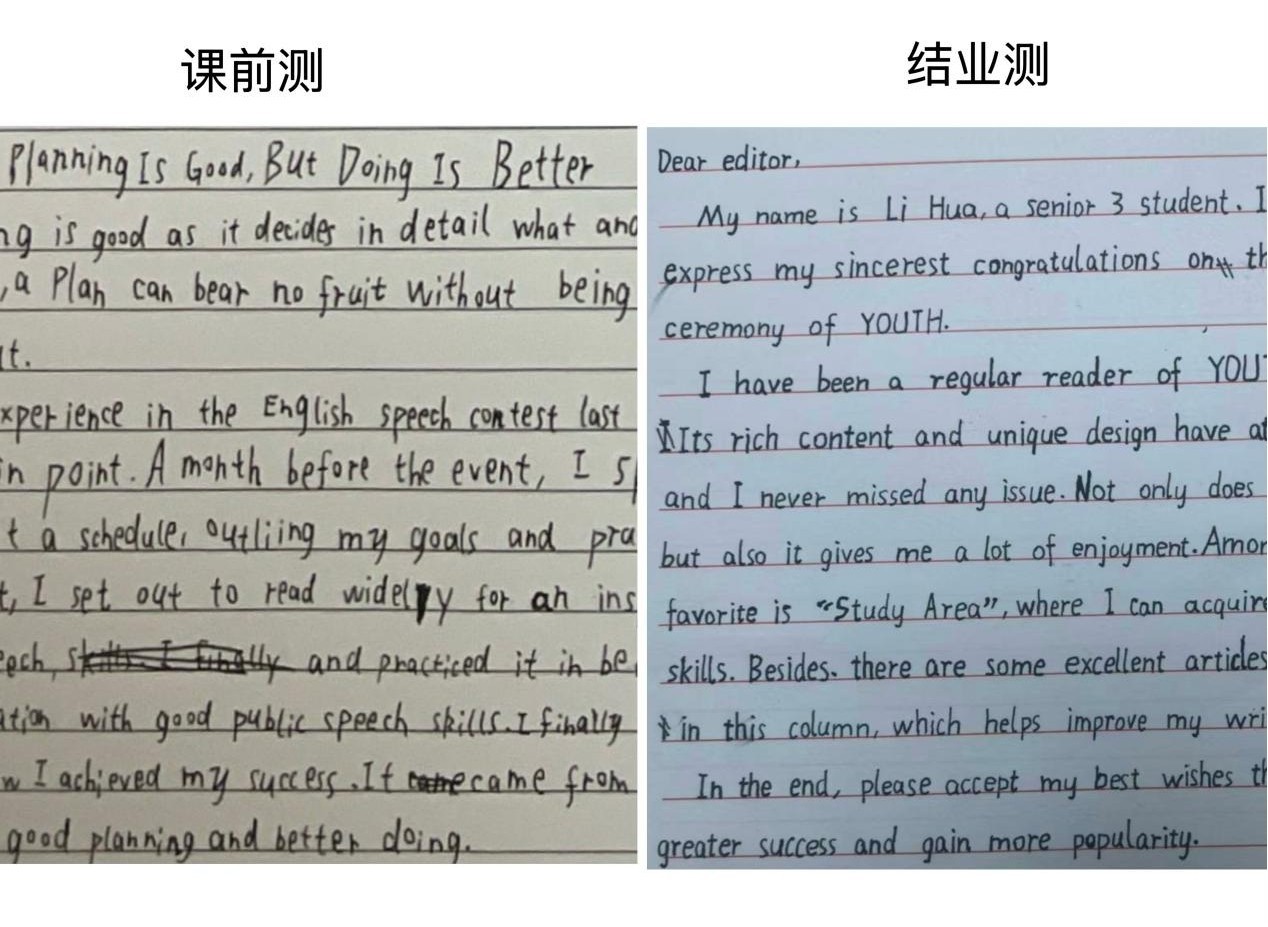 课前测
结业测
Planning Is Good, But Doing Is Better
ng is good as it decides in detail what and
, a Plan can bear no fruit without being
t.
xperience in the English speech contest last
in point. A month before the event, I sp
t a schedule, outliing my goals and pra
t, I set out to read widely for an ins
eech, and practiced it in be
ation with good public speech skills. I finally
w I achieved my success. It came from
good planning and better doing.
Dear editor,
My name is Li Hua, a senior 3 student. I
express my sincerest congratulations on th
ceremony of YOUTH.
I have been a regular reader of YOUT
Its rich content and unique design have at
and I never missed any issue. Not only does
but also it gives me a lot of enjoyment. Amon
favorite is "Study Area", where I can acquire
skills. Besides. there are some excellent articles
in this column, which helps improve my wri
In the end, please accept my best wishes th
greater success and gain more popularity.